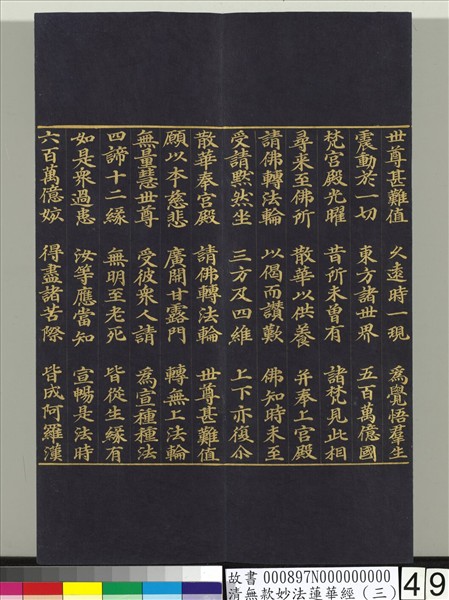 世尊甚難值 久遠時一現 為覺悟羣生
震動於一切 東方諸世界 五百萬億國
梵宮殿光曜 昔所未曾有 諸梵見此相
尋來至佛所 散華以供養 并奉上宮殿
請佛轉法輪 以偈而讚歎 佛知時未至
受請默然坐 三方及四維 上下亦復尒
散華奉宮殿 請佛轉法輪 世尊甚難值
願以本慈悲 廣開甘露門 轉無上法輪
無量慧世尊 受彼衆人請 為宣種種法
四諦十二緣 無明至老死 皆從生緣有
如是衆過患 汝等應當知 宣暢是法時
六百萬億姟 得盡諸苦際 皆成阿羅漢
故書 000897N000000000
清無款妙法蓮華經（三）
49